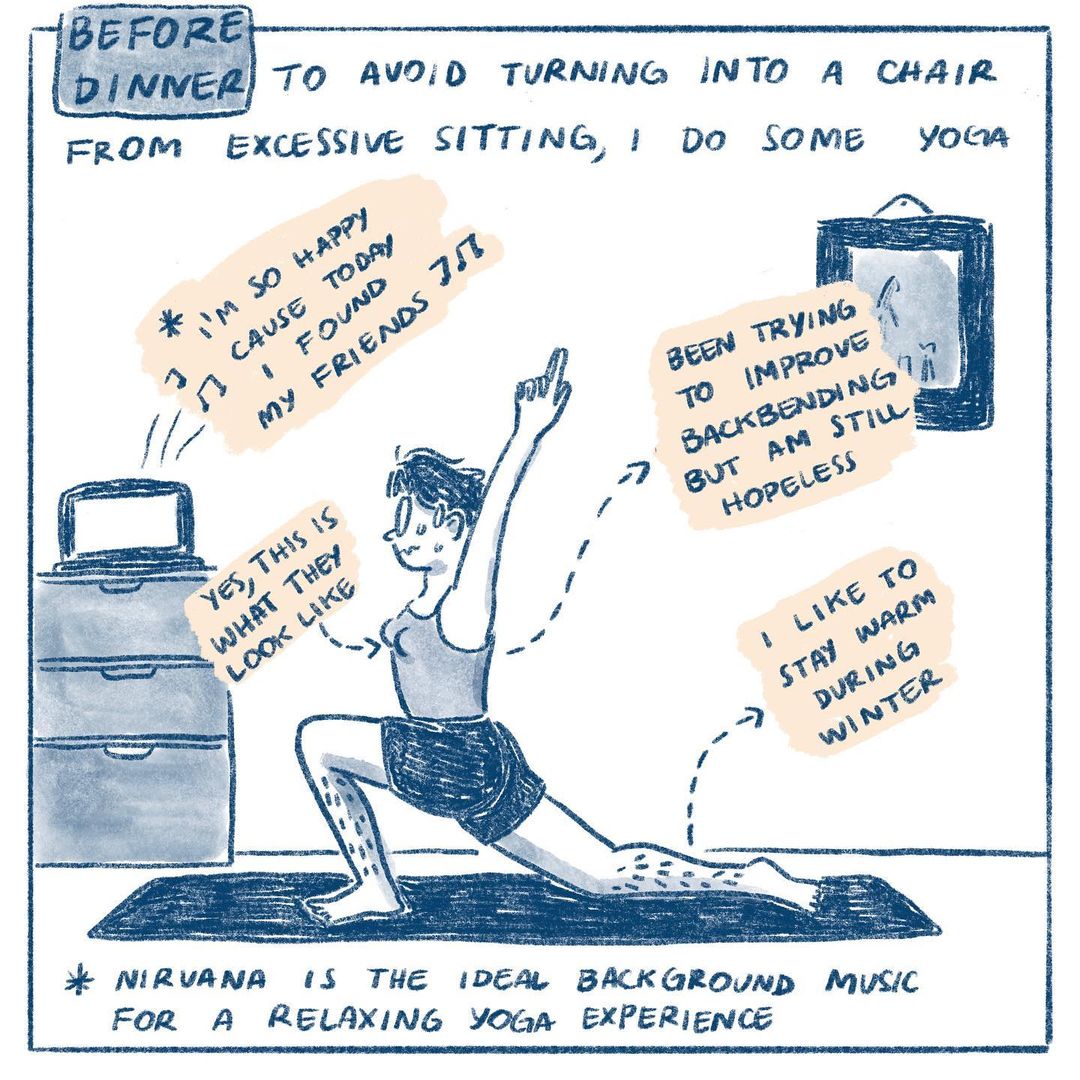 BEFORE
DINNER TO AVOID TURNING INTO A CHAIR
FROM EXCESSIVE SITTING, I DO SOME YOGA
* I'M SO HAPPY
CAUSE TODAY
I FOUND
MY FRIENDS
BEEN TRYING
TO IMPROVE
BACKBENDING
BUT AM STILL
HOPELESS
YES, THIS IS
WHAT THEY
LOOK LIKE
I LIKE TO
STAY WARM
DURING
WINTER
* NIRVANA IS THE IDEAL BACKGROUND MUSIC
FOR A RELAXING YOGA EXPERIENCE